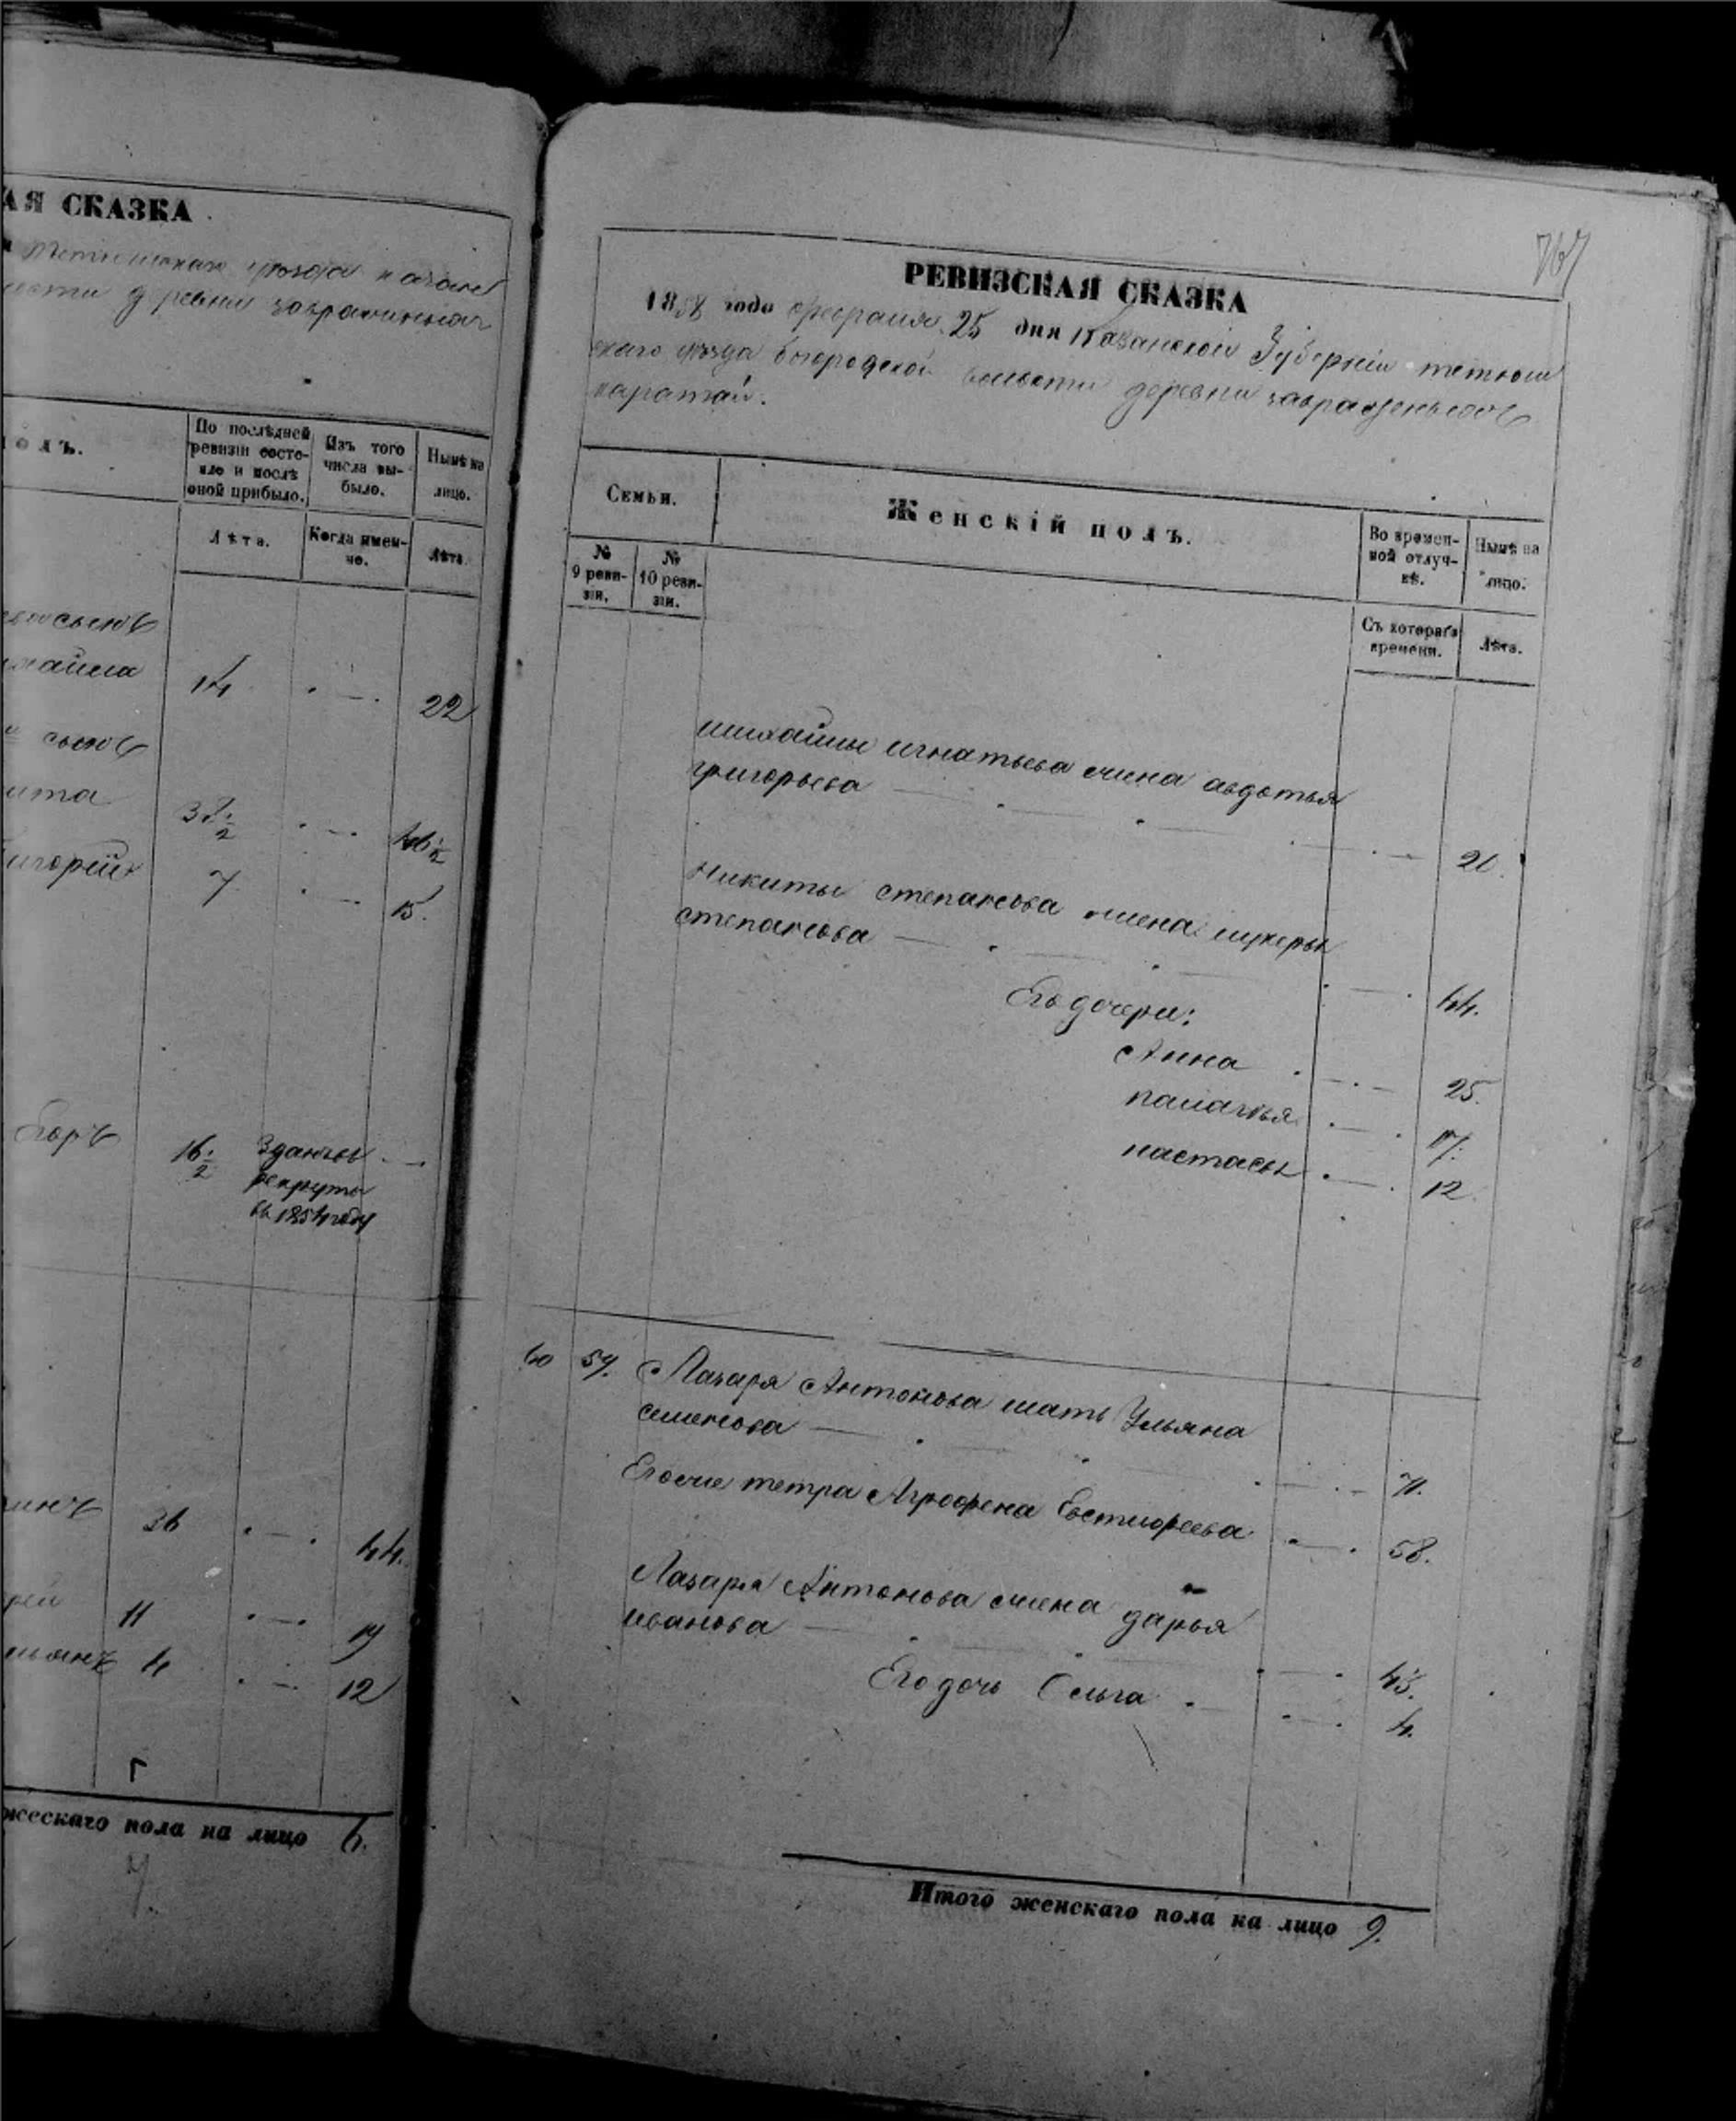 АЯ СКАЗКА
деревни
олъ.
По послѣдней ревизіи состо-
яло и послѣ
оной прибыло.
Изъ того
числа вы-
было.
Нынѣ на
лицо.
Лѣта.
Когда имен-
но.
Лѣта.
сынъ
14 22
сынъ
ита 38½ 46½
игорей 7 15.
Егоръ 16½ Зданъ въ
рекруты
въ 1854 году
36 44.
рей 11 19
4 12
жескаго пола на лицо 6.
7.
767
РЕВИЗСКАЯ СКАЗКА
1858 года февраля 25 дня Казанской Губерніи тетюш
скаго уѣзда богородской волости деревни
каратай.
Семьи.
Женскій полъ.
Во времен-
ной отлуч-
кѣ.
Нынѣ на
лицо.
№
9 реви-
зіи.
№
10 реви-
зіи.
Съ котораго
времени.
Лѣта.
михайлы игнатьева жена авдотья
григорьева 21.
Никиты степанова жена
степанова 44.
Его дочери:
Анна 25.
палагея 17.
настасья 12.
60 57. Лазаря Антонова мать Ульяна
семенова 71.
Его же тетка Агрофена Евстифеева 58.
Лазаря Антонова жена дарья
иванова 45.
Его дочь Ольга 4.
Итого женскаго пола на лицо 9.